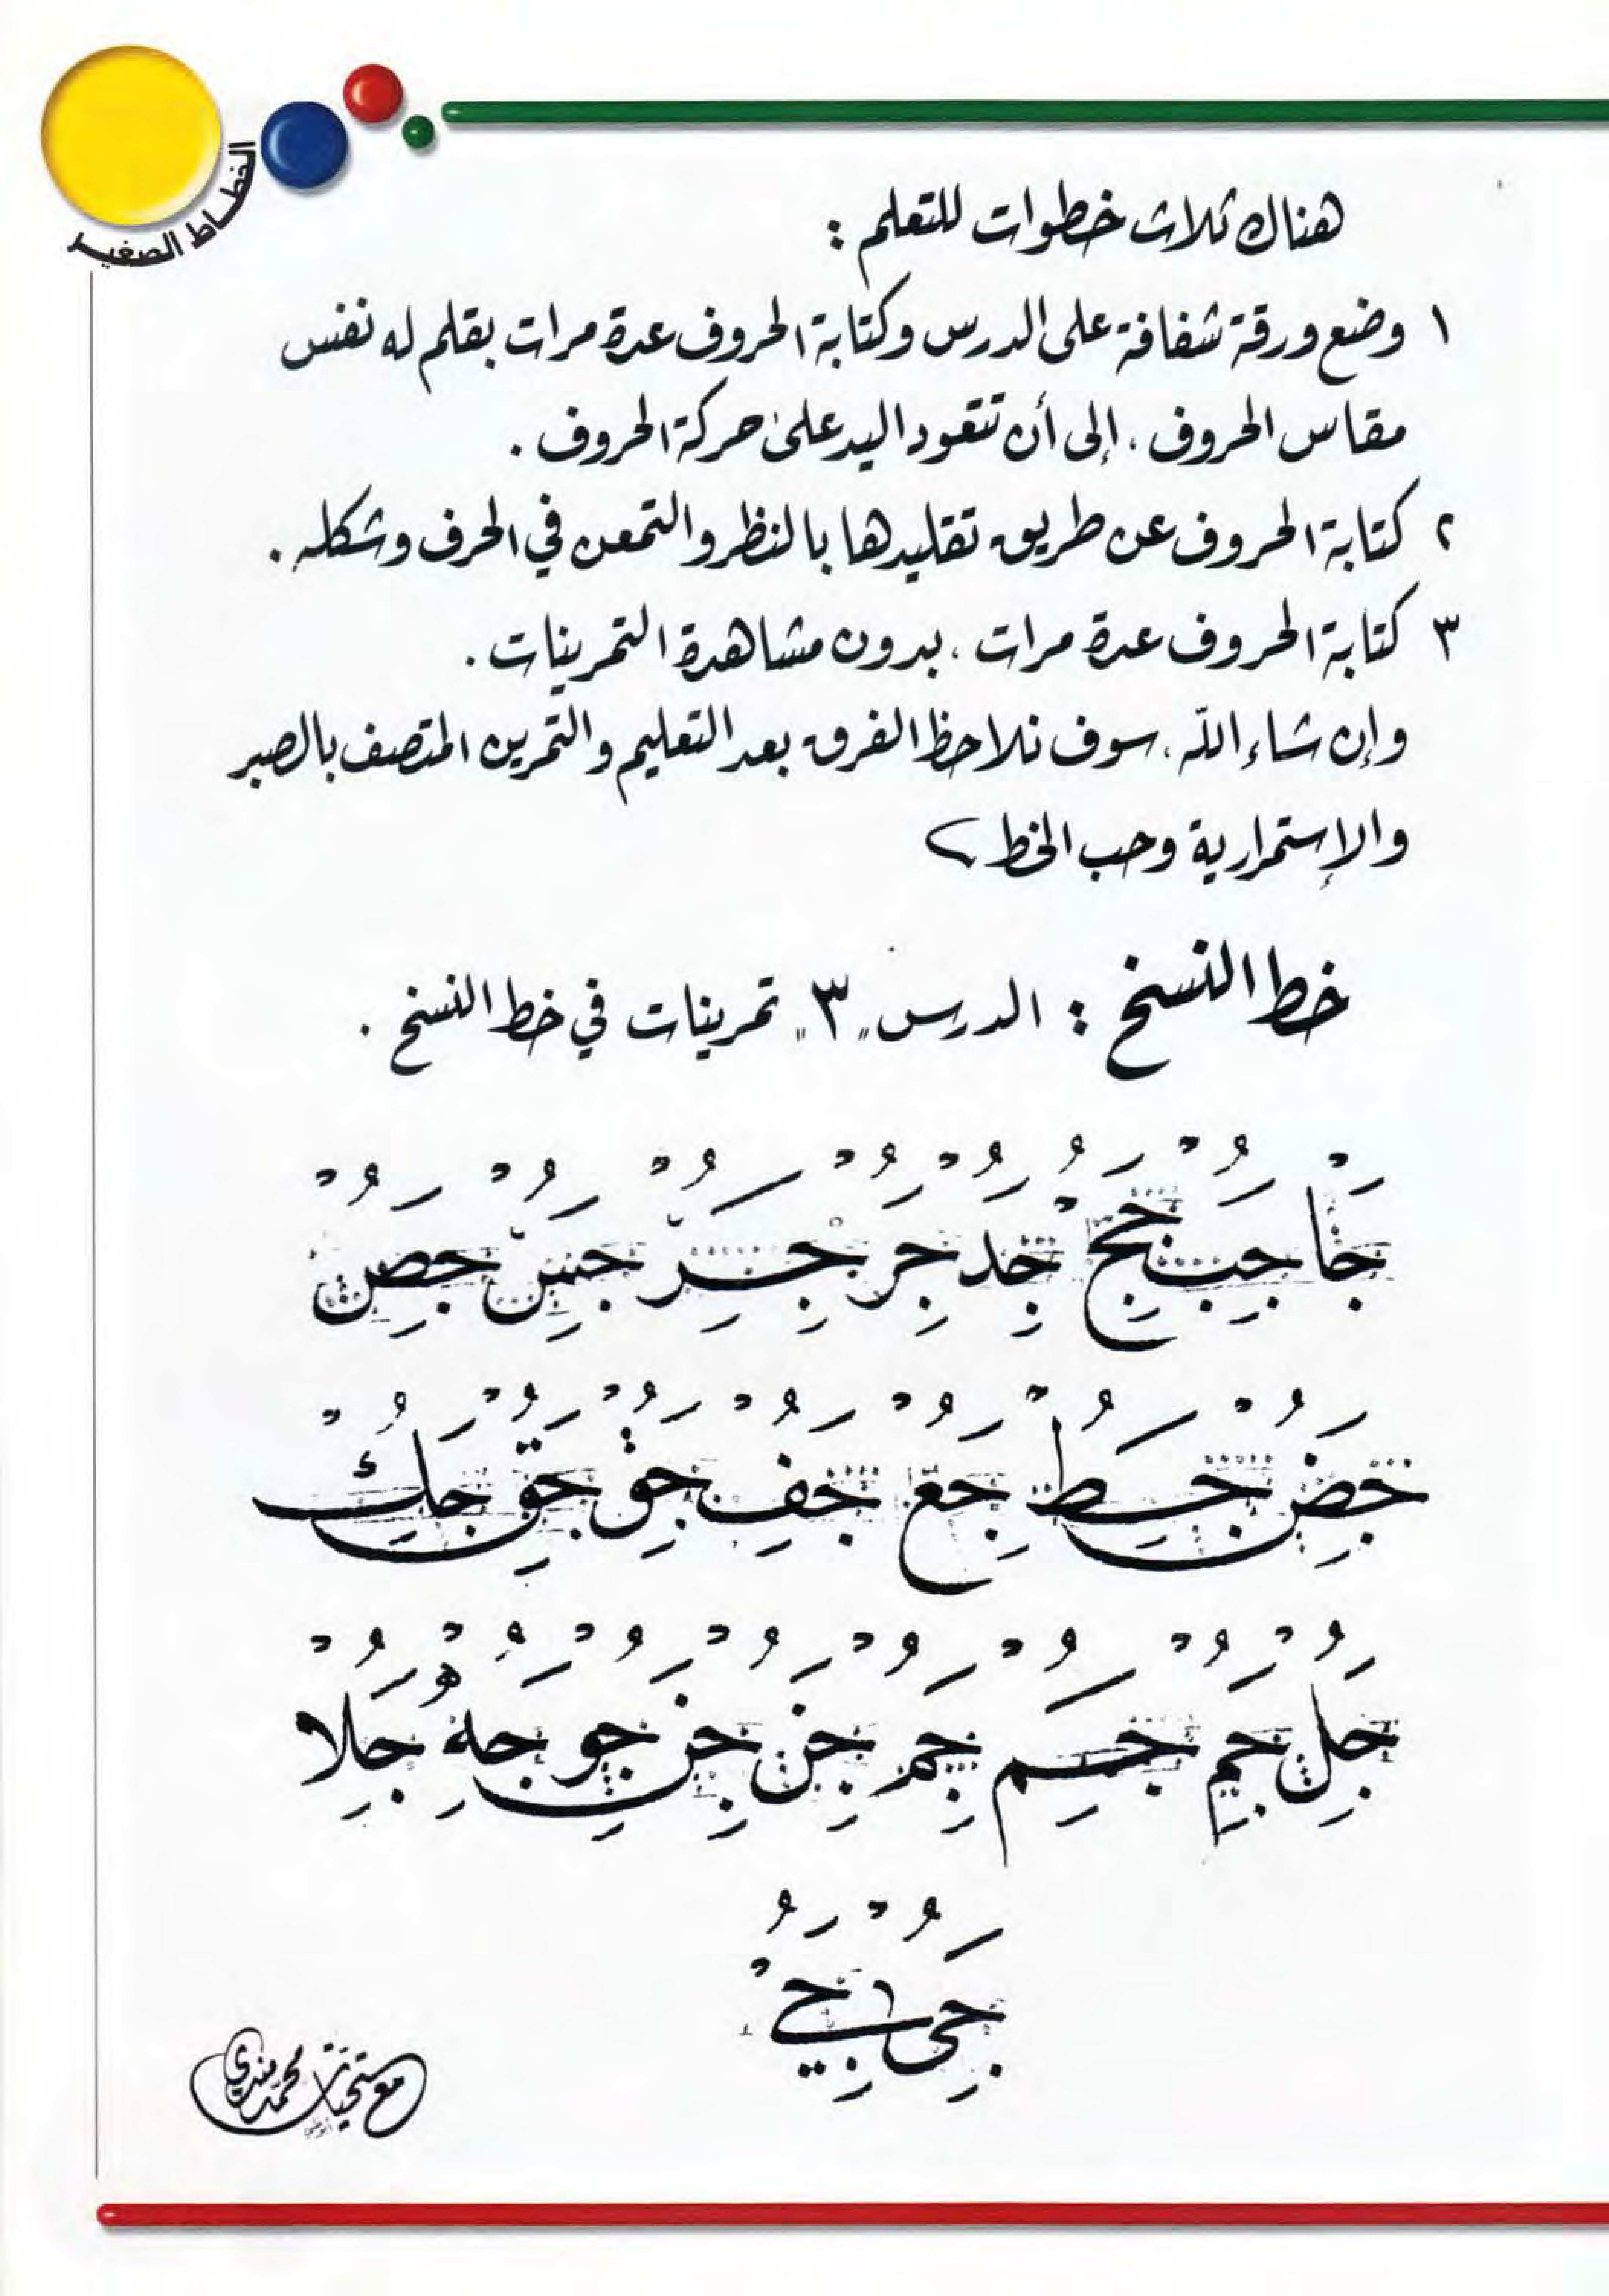 الخطاط الصغير
هناك ثلاث خطوات للتعلم :
١ وضع ورقة شفافة على الدرس وكتابة الحروف عدة مرات بقلم له نفس
مقاس الحروف ، إلى أن تتعود اليد على حركة الحروف .
٢ كتابة الحروف عن طريق تقليدها بالنظر والتمعن في الحرف وشكله .
٣ كتابة الحروف عدة مرات ، بدون مشاهدة التمرينات .
وإن شاء الله ، سوف نلاحظ الفرق بعد التعليم والتمرين المتصف بالصبر
والإستمرارية وحب الخط
خط النسخ : الدرس "٣" تمرينات في خط النسخ .
جا جب جج جد جر جر جس جص
جض جط جع جف جق جق جك
جل جم جم جم جن جن جو جه جلا
جى جي
مع تحيات محمد مندي